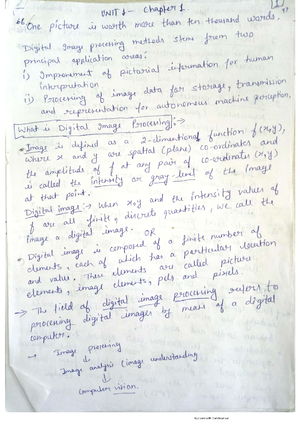 UNIT 1 - Chapter 1
"One picture is worth more than ten thousand words."
Digital Image processing methods stems from two
principal application areas:
i) Improvement of pictorial information for human
interpretation
ii) Processing of image data for storage, transmission
and representation for autonomous machine perception.
What is Digital Image Processing:-
Image is defined as a 2-dimentional function f(x,y),
where x and y are spatial (plane) co-ordinates and
the amplitude of f at any pair of co-ordinates (x,y)
is called the intensity or gray-level of the image
at that point.
Digital Image:- when x,y and the intensity values of
f are all finite, discrete quantities, we call the
image a digital image. OR
Digital image is composed of a finite number of
elements, each of which has a particular location
and value. These elements are called picture
elements, image elements, pels and pixels.
→ The field of digital image processing refers to
processing digital images by means of a digital
computer.
→ Image processing
↓
Image analysis (image understanding)
↓
computer vision.